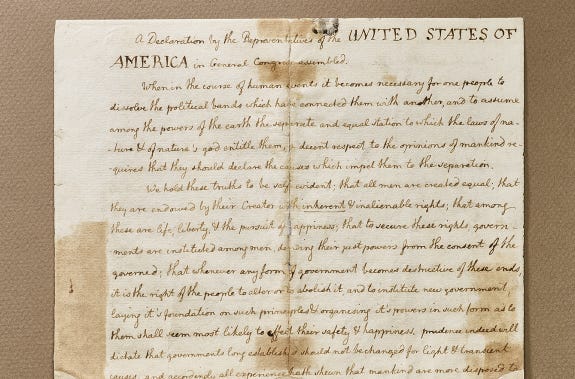 A Declaration by the Representatives of the UNITED STATES OF
AMERICA in General Congress assembled.
When in the course of human events it becomes necessary for one people to
dissolve the political bands which have connected them with another, and to assume
among the powers of the earth the separate and equal station to which the laws of na-
ture & of nature's god entitle them, a decent respect to the opinions of mankind re-
quires that they should declare the causes which impel them to the separation.
We hold these truths to be self evident; that all men are created equal; that
they are endowed by their Creator with inherent & inalienable rights; that among
these are life, liberty, & the pursuit of happiness; that to secure these rights, govern-
ments are instituted among men, deriving their just powers from the consent of the
governed; that whenever any form of government becomes destructive of these ends,
it is the right of the people to alter or to abolish it, and to institute new government,
laying it's foundation on such principles & organising it's powers in such form as to
them shall seem most likely to effect their safety & happiness. prudence indeed will
dictate that governments long established should not be changed for light & transient
causes. and accordingly all experience hath shewn that mankind are more disposed to